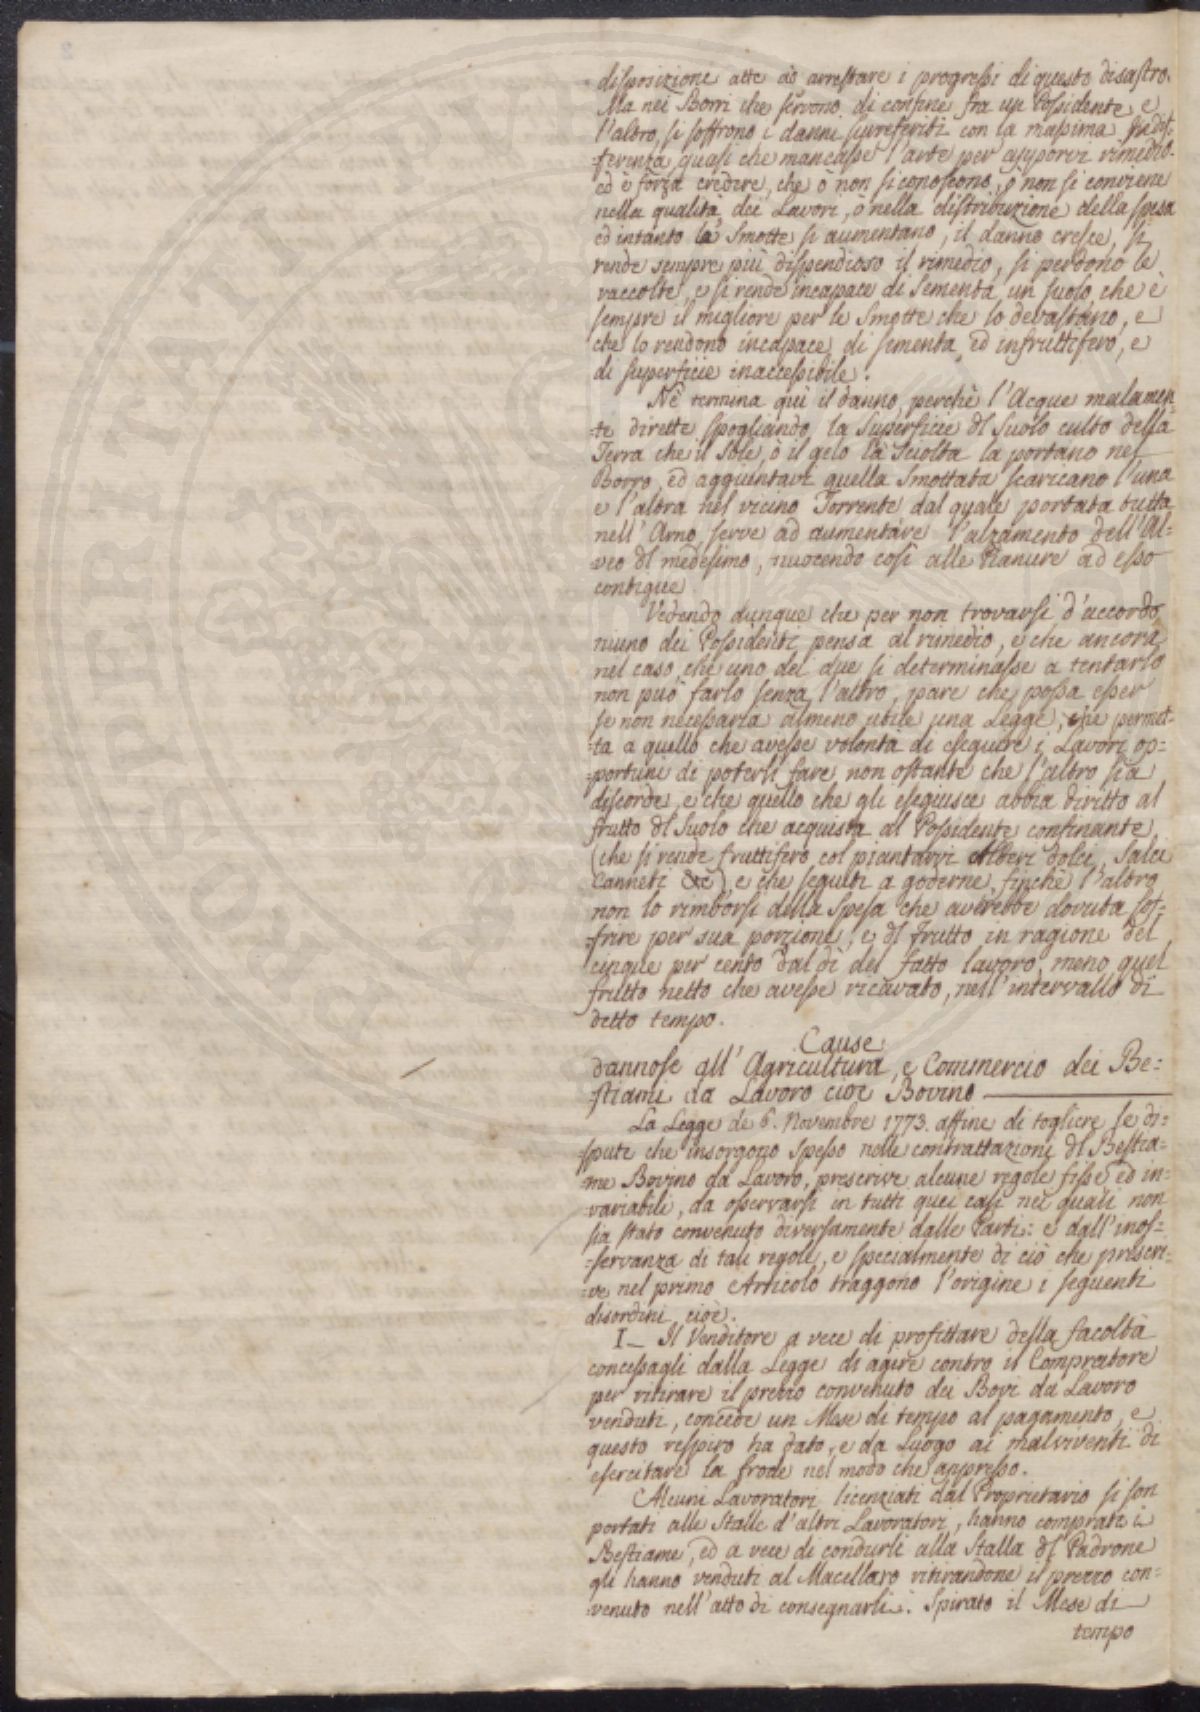 disposizione atte ad arrestare i progressi di questo disastro.
Ma nei Borri che servono di confine fra un Possidente e
l'altro, si soffrono i danni surreferiti con la massima Indif=
=ferenza, quasi che mancasse l'arte per apporvi rimedio.
ed è forza credere, che ò non si conoscono, ò non si conviene
nella qualità dei Lavori, ò nella distribuzione della spesa
ed intanto le Smotte si aumentano, il danno cresce, si
rende sempre più dispendioso il rimedio, si perdono le
raccolte, e si rende incapace di Sementa un suolo che è
sempre il migliore per le Smotte che lo devastano, e
che lo rendono incapace di sementa ed infruttifero, e
di superficie inaccessibile.
Nè termina qui il danno, perchè l'Acque malamen=
=te dirette spogliando la Superficie dl Suolo culto della
Terra che il Sole, ò il gelo là sciolta la portano nel
Borro, ed aggiuntavi quella Smottata scaricano l'una
e l'altra nel vicino Torrente dal quale portata tutta
nell'Arno serve ad aumentare l'alzamento dell'Al=
=veo dl medesimo, nuocendo così alle Pianure ad esso
contigue.
Vedendo dunque che per non trovarsi d'accordo
niuno dei Possidenti pensa al rimedio, e che ancora
nel caso che uno del due si determinasse a tentarlo
non può farlo senza l'altro, pare che possa esser
se non necessaria almeno utile una Legge, che permet=
=ta a quello che avesse volontà di eseguire i Lavori op=
=portuni di poterli fare non ostante che l'altro sia
discorde, e che quello che gli eseguisce abbia diritto al
frutto dl Suolo che acquista al Possidente confinante
(che si rende fruttifero col piantarvi Alberi dolci, Salci
Canneti &c), e che seguiti a goderne finchè l'altro
non lo rimborsi della Spesa che averebbe dovuta sof=
=frire per sua porzione, e dl Frutto in ragione del
cinque per cento dal dì del fatto lavoro, meno quel
frutto netto che avesse ricavato, nell'intervallo di
detto tempo.
Cause
dannose all'Agricultura, e Commercio dei Be=
=stiami da Lavoro cioè Bovino
La Legge de 6. Novembre 1773. affine di togliere le di=
=spute che insorgono spesso nelle contrattazioni dl Bestia=
=me Bovino da Lavoro, prescrive alcune regole fisse ed in=
=variabili, da osservarsi in tutti quei casi nei quali non
sia stato convenuto diversamente dalle Parti: e dall'inos=
=servanza di tali regole, e specialmente di ciò che prescri=
=ve nel primo Articolo traggono l'origine i seguenti
disordini cioè.
I_ Il Venditore a vece di profittare della facoltà
concessagli dalla Legge di agire contro il Compratore
per ritirare il prezzo convenuto dei Bovi da Lavoro
venduti, concede un Mese di tempo al pagamento, e
questo respiro ha dato, e da Luogo ai malviventi di
esercitare la frode nel modo che appresso.
Alcuni Lavoratori licenziati dal Proprietario si son
portati alle Stalle d'altri Lavoratori, hanno comprati i
Bestiame, ed a vece di condurli alla Stalla dl Padrone
gli hanno venduti al Macellaro ritirandone il prezzo con=
=venuto nell'atto di consegnarli. Spirato il Mese di
tempo